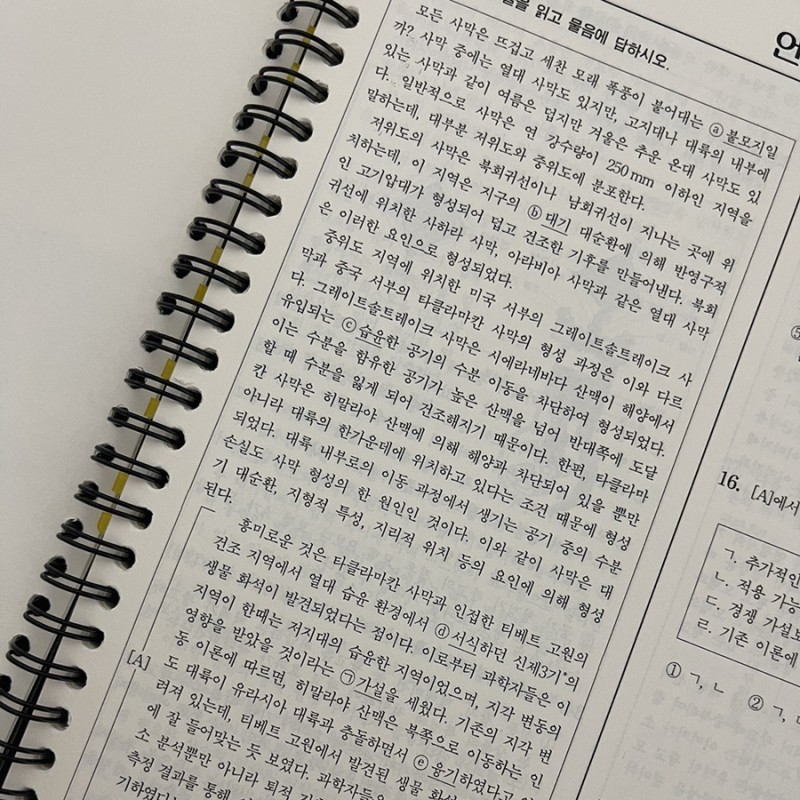 을 읽고 물음에 답하시오.
모든 사막은 뜨겁고 세찬 모래 폭풍이 불어대는 ⓐ불모지일
까? 사막 중에는 열대 사막도 있지만, 고지대나 대륙의 내부에
있는 사막과 같이 여름은 덥지만 겨울은 추운 온대 사막도 있
다. 일반적으로 사막은 연 강수량이 250mm 이하인 지역을
말하는데, 대부분 저위도와 중위도에 분포한다.
저위도의 사막은 북회귀선이나 남회귀선이 지나는 곳에 위
치하는데, 이 지역은 지구의 ⓑ대기 대순환에 의해 반영구적
인 고기압대가 형성되어 덥고 건조한 기후를 만들어낸다. 북회
귀선에 위치한 사하라 사막, 아라비아 사막과 같은 열대 사막
은 이러한 요인으로 형성되었다.
중위도 지역에 위치한 미국 서부의 그레이트솔트레이크 사
막과 중국 서부의 타클라마칸 사막의 형성 과정은 이와 다르
다. 그레이트솔트레이크 사막은 시에라네바다 산맥이 해양에서
유입되는 ⓒ습윤한 공기의 수분 이동을 차단하여 형성되었다.
이는 수분을 함유한 공기가 높은 산맥을 넘어 반대쪽에 도달
할 때 수분을 잃게 되어 건조해지기 때문이다. 한편, 타클라마
칸 사막은 히말라야 산맥에 의해 해양과 차단되어 있을 뿐만
아니라 대륙의 한가운데에 위치하고 있다는 조건 때문에 형성
되었다. 대륙 내부로의 이동 과정에서 생기는 공기 중의 수분
손실도 사막 형성의 한 원인인 것이다. 이와 같이 사막은 대
기 대순환, 지형적 특성, 지리적 위치 등의 요인에 의해 형성
된다.
흥미로운 것은 타클라마칸 사막과 인접한 티베트 고원의
건조 지역에서 열대 습윤 환경에서 ⓓ서식하던 신제3기*의
생물 화석이 발견되었다는 점이다. 이로부터 과학자들은 이
지역이 한때는 저지대의 습윤한 지역이었으며, 지각 변동의
영향을 받았을 것이라는 ㉠가설을 세웠다. 기존의 지각 변
[A]
동 이론에 따르면, 히말라야 산맥은 북쪽으로 이동하는 인
도 대륙이 유라시아 대륙과 충돌하면서 ⓔ융기하였다고
러져 있는데, 티베트 고원에서 발견된 생물 화석
에 잘 들어맞는 듯 보였다. 과학자들은
소 분석뿐만 아니라 퇴적
측정 결과를 통해
기하였다는
언
⑤
16. [A]에서
ㄱ. 추가적인
ㄴ. 적용 가능
ㄷ. 경쟁 가설
ㄹ. 기존 이론에
① ㄱ, ㄴ ② ㄱ,